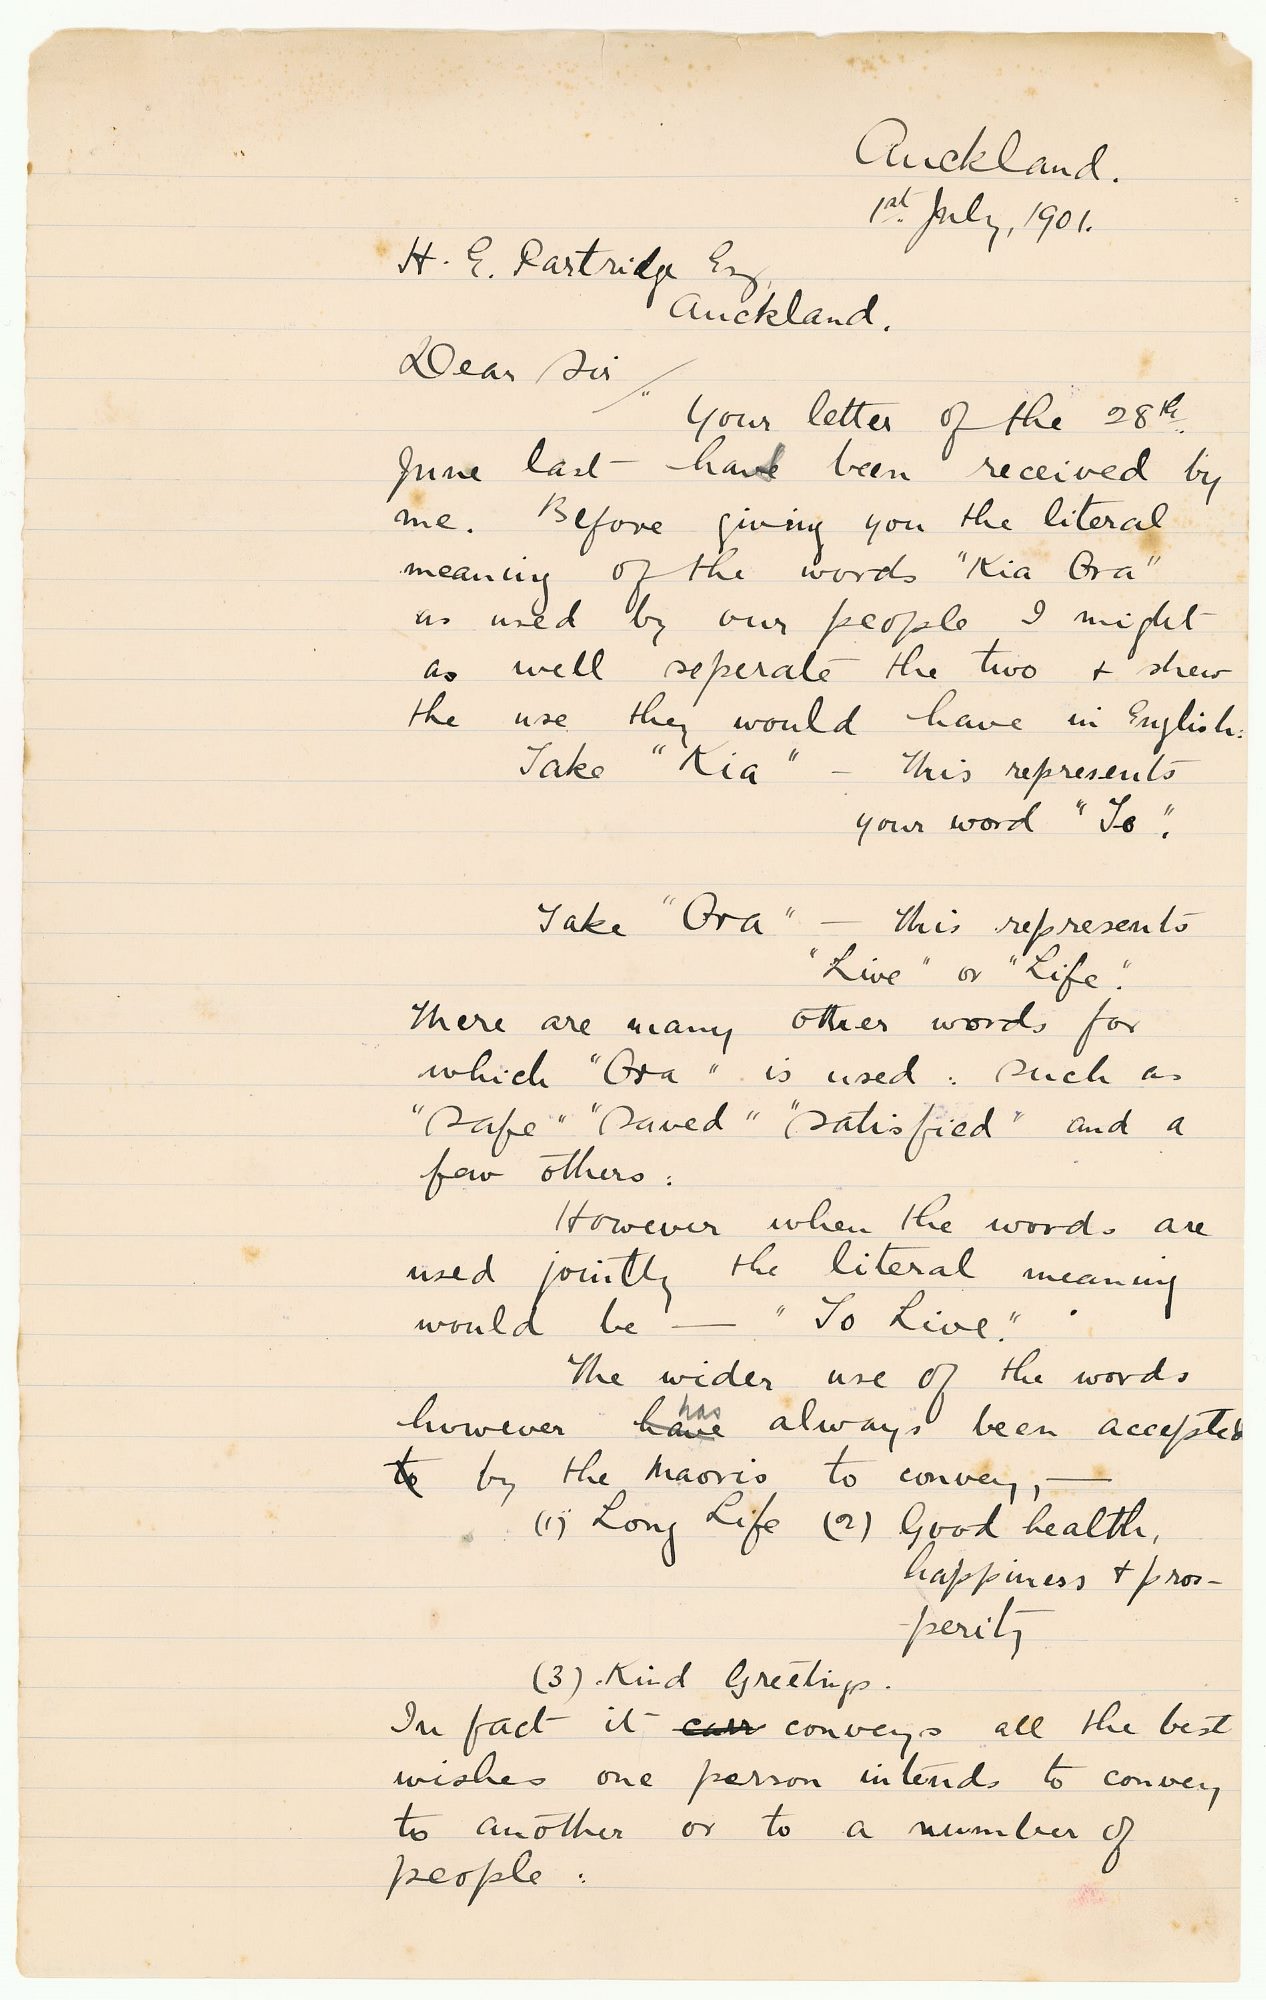 Auckland.
1st July, 1901.
H. E. Partridge Esq,
Auckland.
Dear Sir
Your letter of the 28th
June last have been received by
me. Before giving you the literal
meaning of the words "Kia Ora"
as used by our people I might
as well seperate the two + shew
the use they would have in English:
Take "Kia" - this represents
your word "To".
Take "Ora" - this represents
"Live" or "Life".
There are many other words for
which "Ora" is used: such as
"safe" "saved" "satisfied" and a
few others:
However when the words are
used jointly the literal meaning
would be — "To Live."
The wider use of the words
however have has always been accepted
to by the Maoris to convey, —
(1) Long Life (2) Good health,
happiness + pros-
-perity
(3) Kind Greetings.
In fact it conveys all the best
wishes one person intends to convey
to another or to a number of
people: